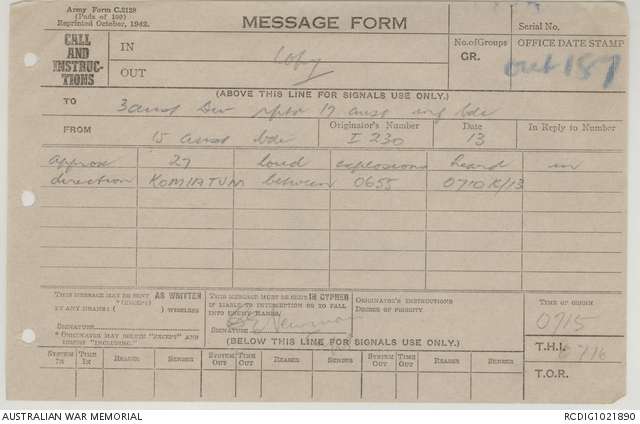 Army Form C.2128
(Pads of 100)
Reprinted October, 1942.
MESSAGE FORM
Serial No.
CALL AND INSTRUCTIONS
IN
OUT
Copy
No. of Groups
GR.
OFFICE DATE STAMP
out 157
(ABOVE THIS LINE FOR SIGNALS USE ONLY.)
TO
3 aust Div rptd 17 aust inf bde
FROM
15 aust bde
Originator's Number
I 230
Date
13
In Reply to Number
approx 27 loud explosions heard in
direction KOMIATUM between 0655 0710K/13
THIS MESSAGE MAY BE SENT AS WRITTEN
BY ANY MEANS (EXCEPT) WIRELESS
SIGNATURE
* ORIGINATOR MAY DELETE "EXCEPT" AND INSERT "INCLUDING."
THIS MESSAGE MUST BE SENT IN CYPHER
IF LIABLE TO INTERCEPTION OR TO FALL
INTO ENEMY HANDS.
SIGNATURE
ORIGINATOR'S INSTRUCTIONS
DEGREE OF PRIORITY
TIME OF ORIGIN
0715
(BELOW THIS LINE FOR SIGNALS USE ONLY.)
T.H.I.
0716
T.O.R.
SYSTEM IN
TIME IN
READER
SENDER
SYSTEM OUT
TIME OUT
READER
SENDER
SYSTEM OUT
TIME OUT
READER
SENDER
AUSTRALIAN WAR MEMORIAL
RCDIG1021890